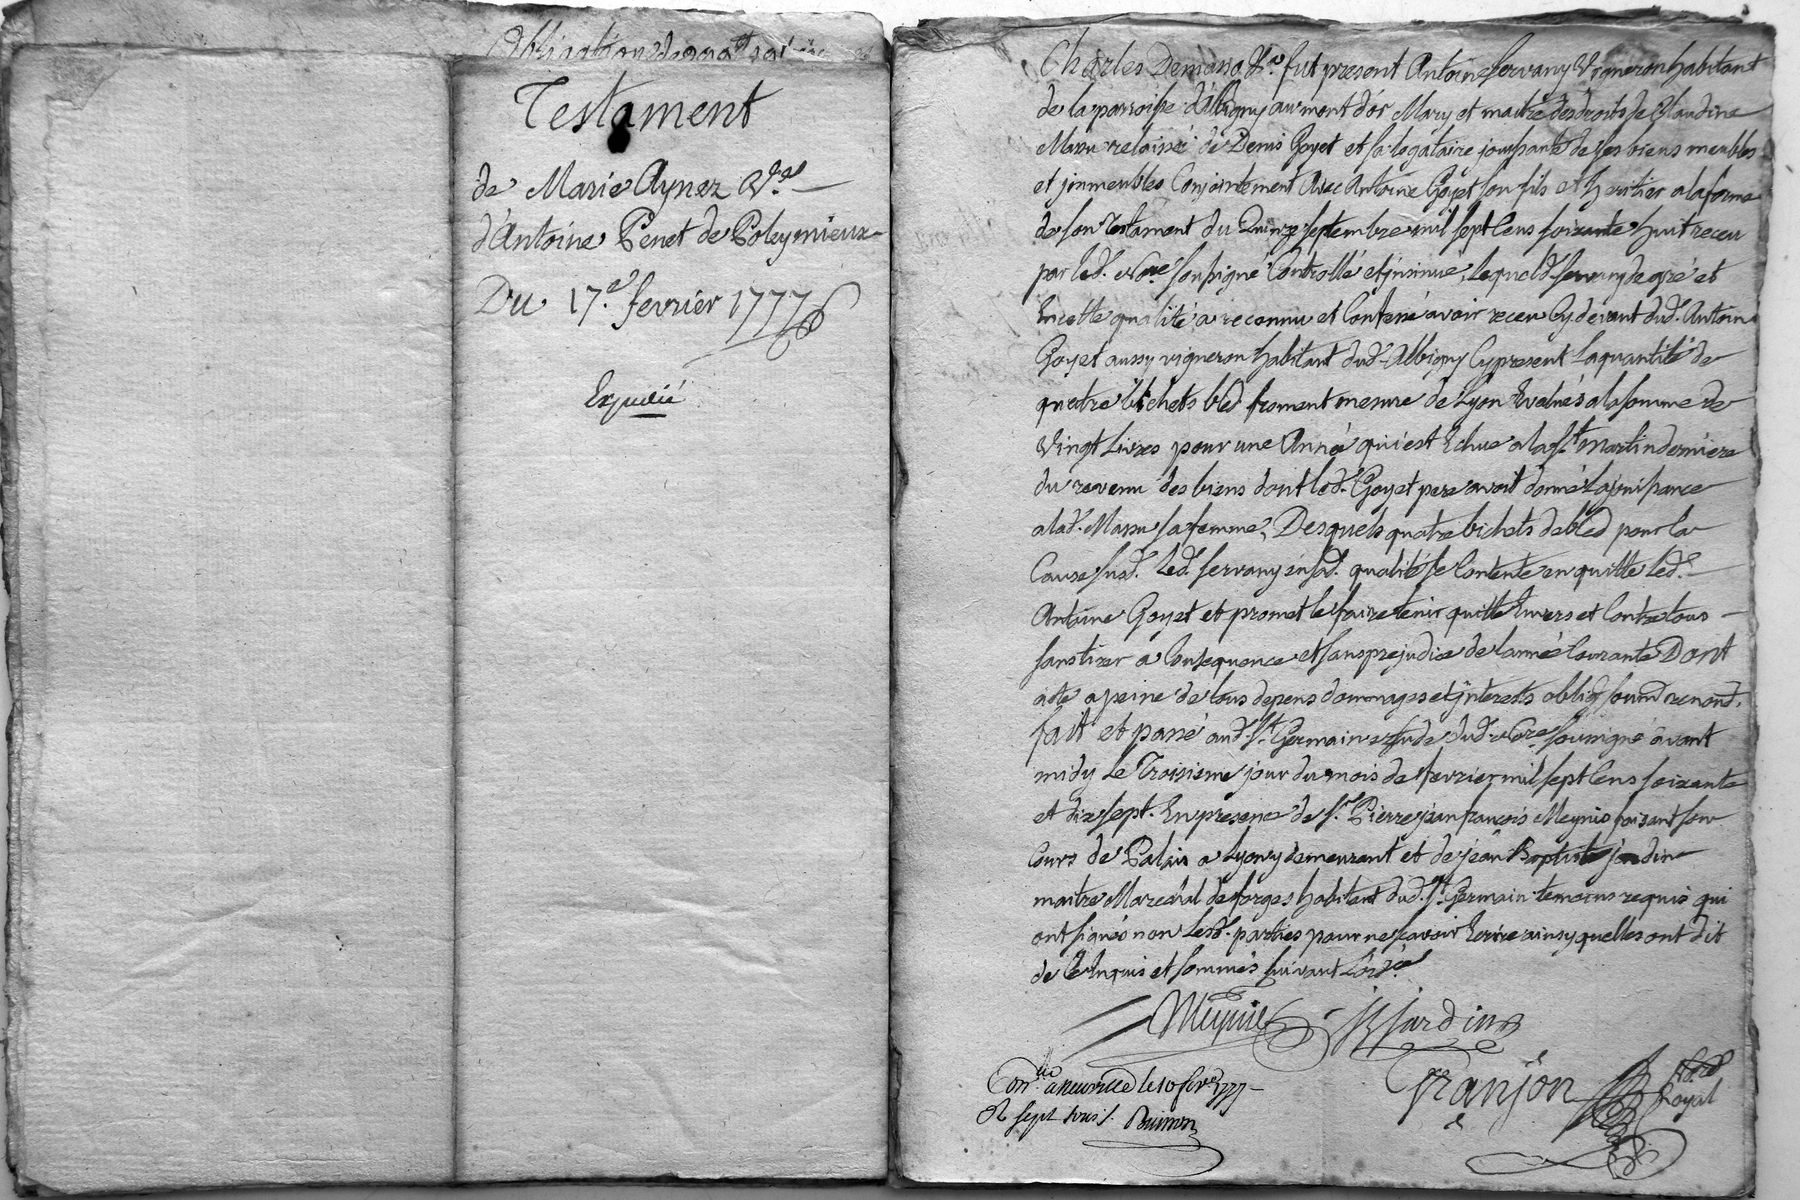 Testament
de Marie Aynez V.e
d'Antoine Penet de Poleymieux
Du 17.e fevrier 1777
Expedié
fut present Antoine Servany Vigneron habitant
de la parroisse d'Albigny au mont d'or Mary et maitre des droits de Claudine
Massu relaissé de Denis Goyet et sa legataire jouissante de ses biens meubles
et jmmeubles Conjointement Avec Antoine Goyet son fils et heritier a la forme
de son Testament du Quinze septembre mil sept Cens soixante huit receu
par led. No.re soussigné Controllé et jnsinué, lequel d. Servany de gré et
En cette qualité a reconnu et Confessé avoir receu Cy devant dud. Antoine
Goyet aussy vigneron habitant dud. Albigny Cy present La quantité de
quatre bichets bled froment mesure de Lyon Evalués a la somme de
Vingt Livres pour une Année qui est Echue a la St. Martin derniere
du revenu des biens dont led. Goyet pere avoit donné La jouissance
a lad. Massu sa femme, Desquels quatre bichets de bled pour la
Cause susd. Led. Servany en sad. qualité se Contente en quitte Led.
Antoine Goyet et promet le faire tenir quitte Envers et Contre tous
sans tirer a Consequence et sans prejudice de l'année Courante Dont
acte a peine de tous depens dommages et jnterests oblig. soum. renond.
fait et passé aud. St. Germain etude dud. No.re soussigné avant
midy Le Troisieme jour du mois de fevrier mil sept Cens soixante
et dix sept. En presence de Sr. Pierre jean françois Meynis faisant son
Cours de Palais a Lyon y demeurant et de jean Baptiste jardin
maitre Marechal de forges habitant dud. St. Germain temoins requis qui
ont signés non Lesd. parties pour ne scavoir Ecrire ainsy quelles ont dit
de Ce Enquis et sommés suivant L'ord.ce
Meynis Jardin
Con.lé a Neuville le 10 fev.r 1777
R sept sous Buisson
Tranjon
Royal